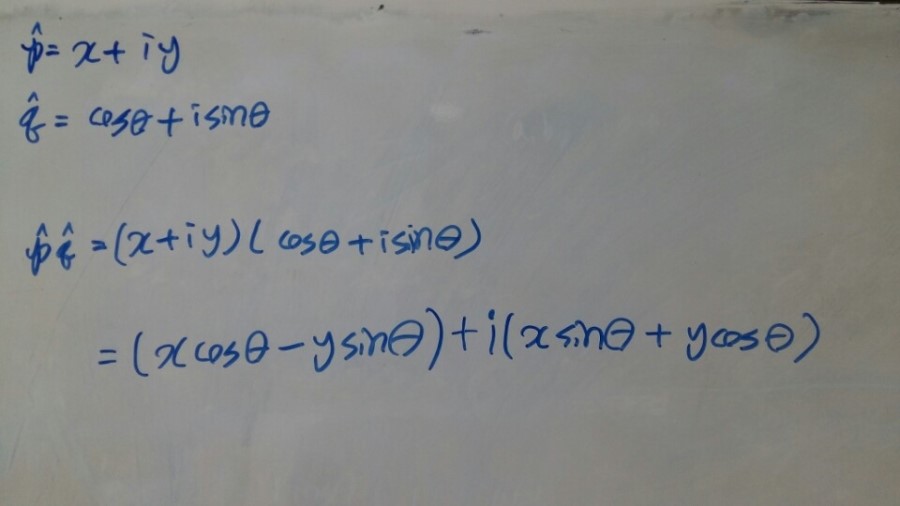 p̂ = x + iy
q̂ = cosθ + isinθ
p̂q̂ = (x+iy)(cosθ + isinθ)
= (xcosθ - ysinθ) + i(xsinθ + ycosθ)